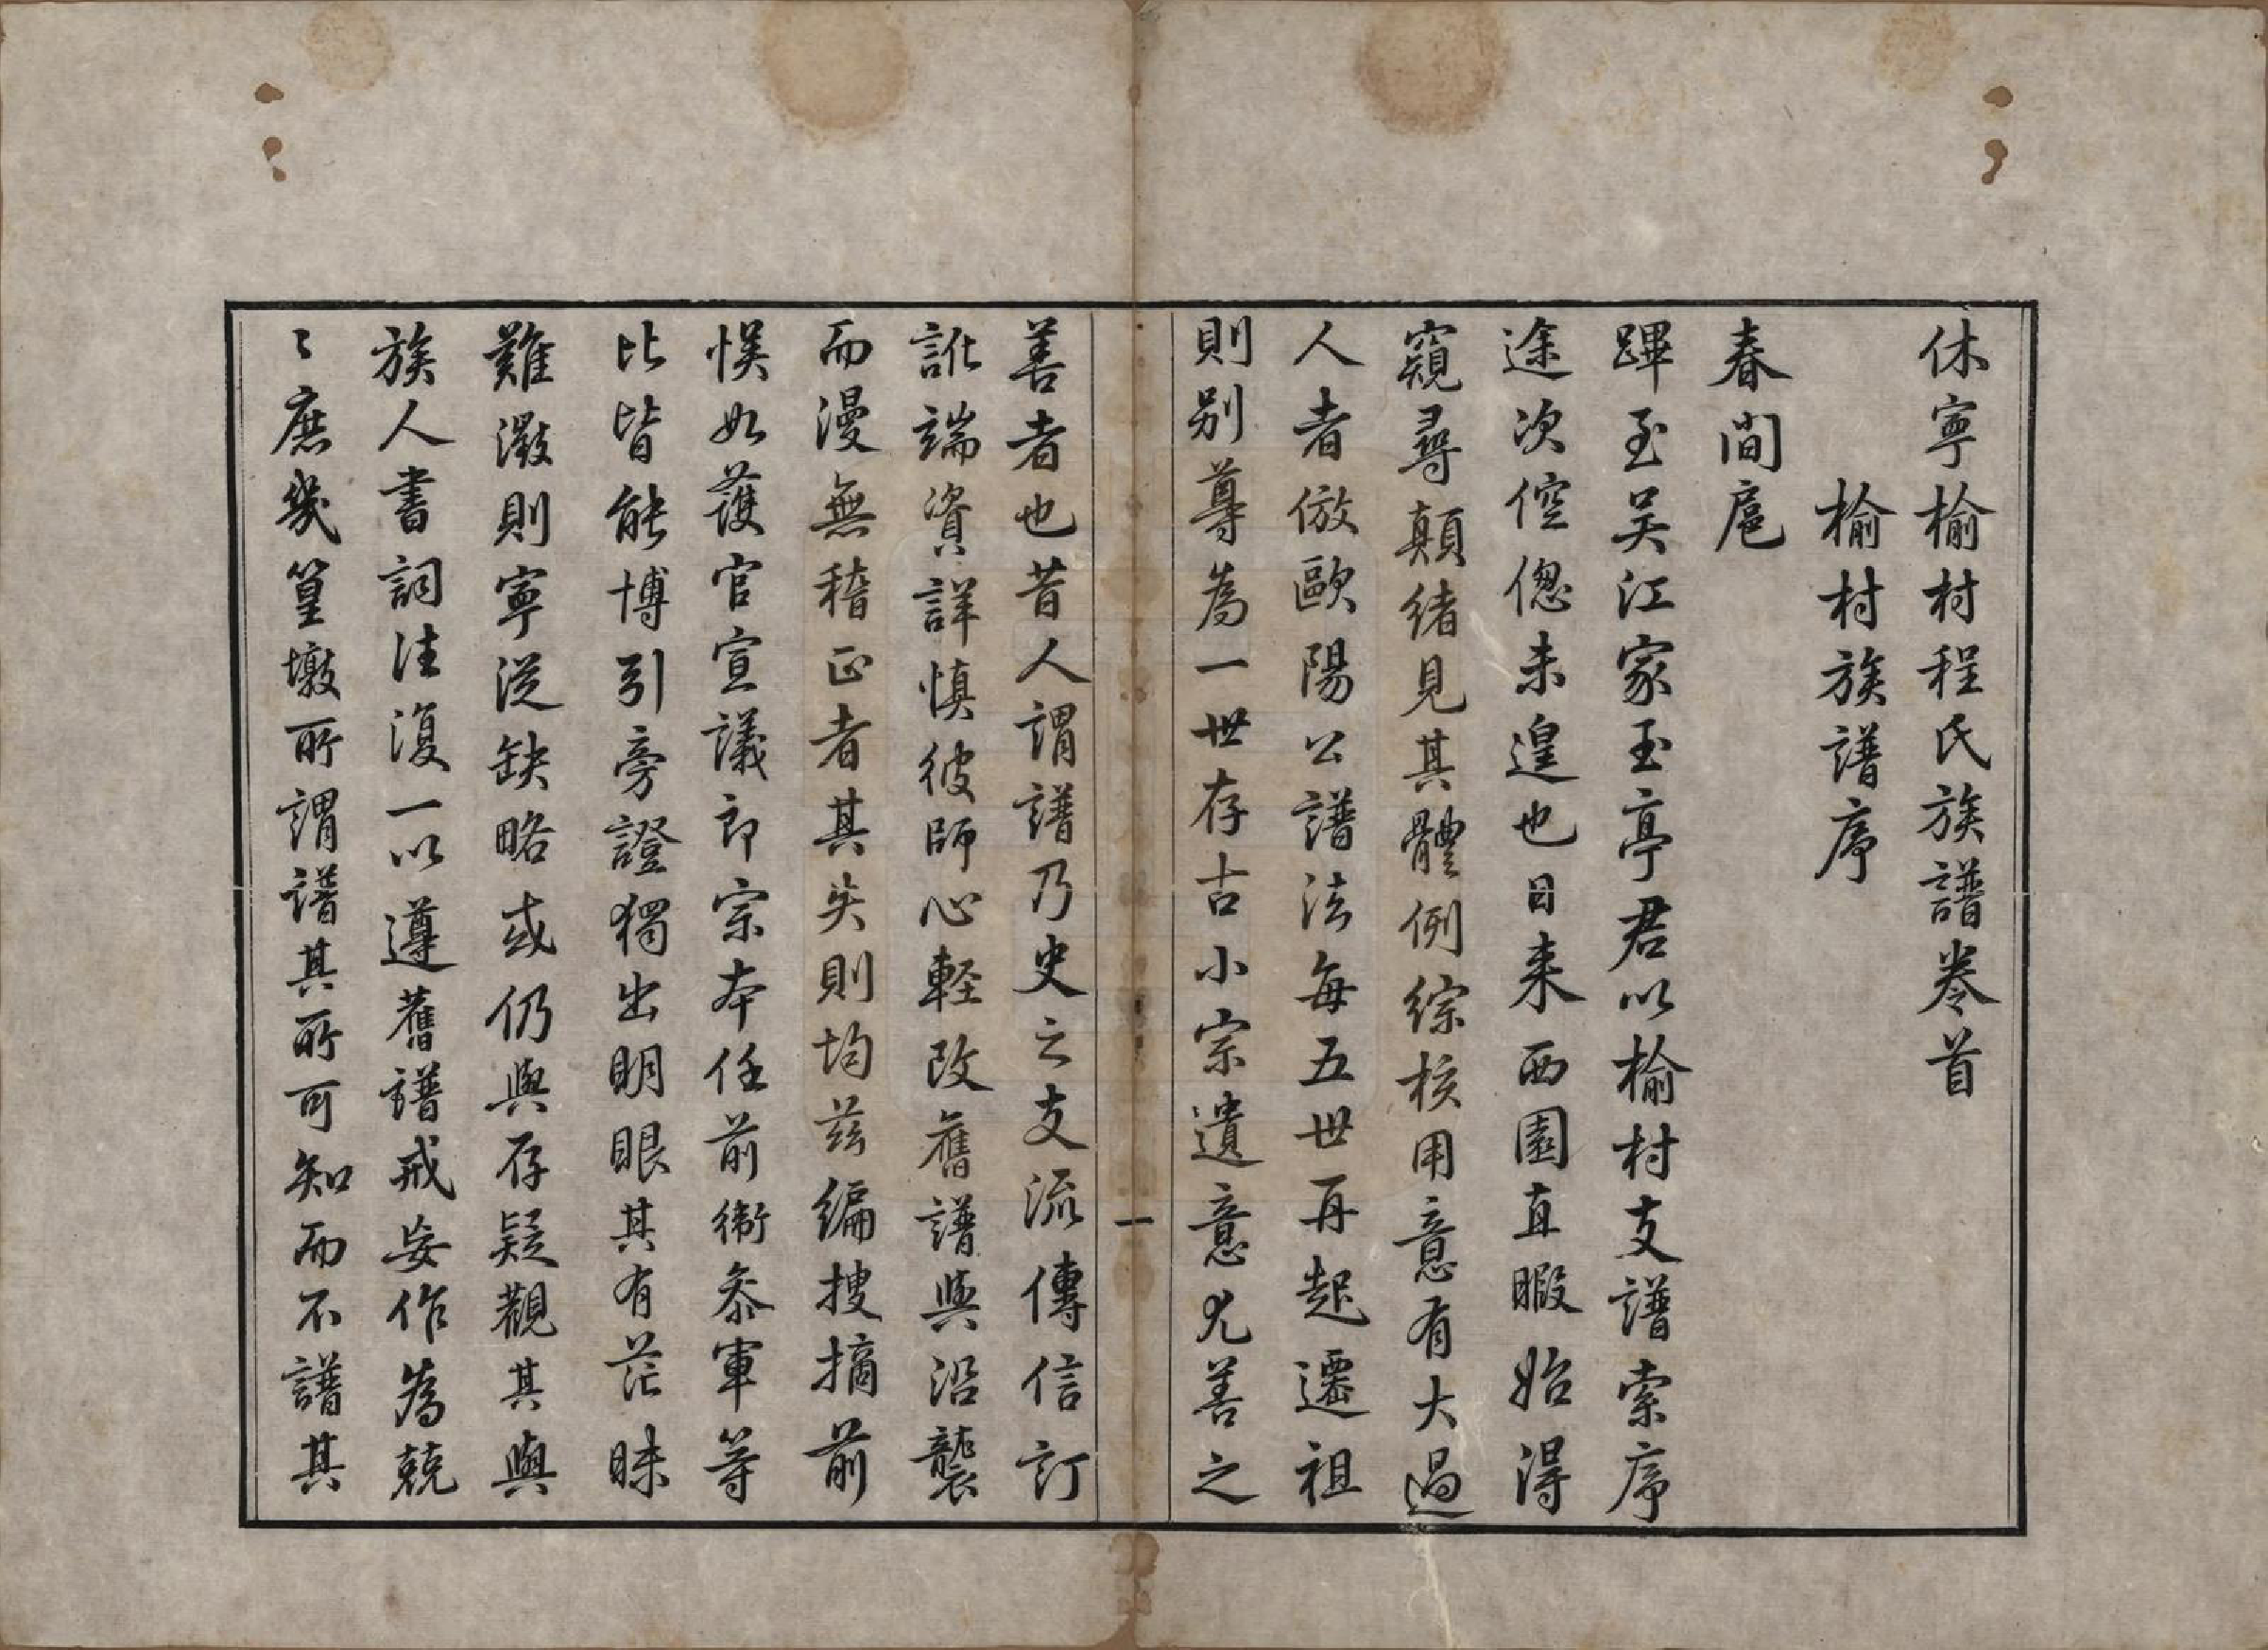 休寧榆村程氏族譜卷首
榆村族譜序
春間扈
蹕至吳江家玉亭君以榆村支譜索序
途次倥傯未遑也日來西園直暇始得
窺尋顛緒見其體例綜核用意有大過
人者倣歐陽公譜法每五世再起遷祖
則別尊為一世存古小宗遺意尤善之
一
善者也昔人謂譜乃史之支流傳信訂
訛端資詳慎彼師心輕改舊譜與沿襲
而漫無稽正者其失則均茲編搜摘前
悞如護官宣議郎宗本任前衛叅軍等
比皆能博引旁證獨出明眼其有茫昧
難澂則寧從缺略或仍與存疑觀其與
族人書詞往復一以遵舊譜戒妄作為兢
〻庶幾篁墩所謂譜其所可知而不譜其